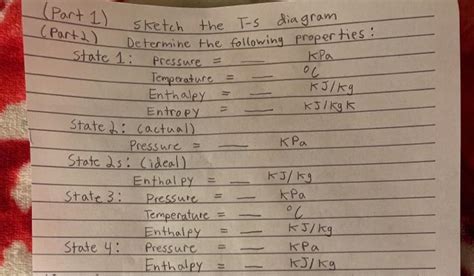 (Part 1) Sketch the T-S diagram
(Part 2) Determine the following properties:
State 1: Pressure = __ KPa
Temperature = __ °C
Enthalpy = __ KJ/Kg
Entropy = __ KJ/KgK
State 2: (actual)
Pressure = __ KPa
State 2s: (ideal)
Enthalpy = __ KJ/Kg
State 3: Pressure = __ KPa
Temperature = __ °C
Enthalpy = __ KJ/Kg
State 4: Pressure = __ KPa
Enthalpy = __ KJ/Kg